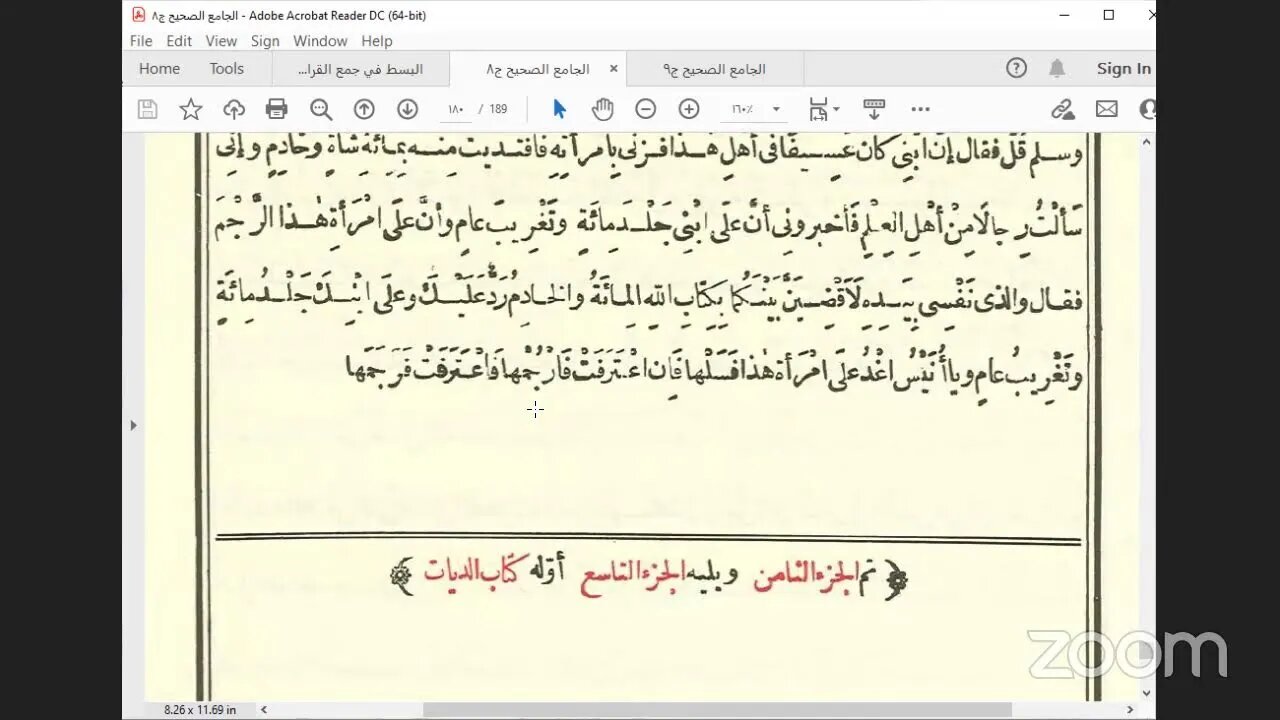 الجامع الصحيح ج٨ - Adobe Acrobat Reader DC (64-bit)
File Edit View Sign Window Help
Home Tools البسط في جمع القرا... الجامع الصحيح ج٨ الجامع الصحيح ج٩ Sign In
١٨٠ / 189 ١٦٠٪
وسلم قُلْ فقال إنّ ابْنِى كان عَسِيفًا فى أهلِ هٰذا فزنى بامرأتِهِ فافتديت منه بمائة شاة وخادم وإنّى
سَأَلْتُ رِجالًا مِنْ أهْلِ العِلْمِ فَأخبرونى أنَّ عَلَى ابْنِى جَلْدَ مِائَةٍ وتَغْرِيبَ عامٍ وأنَّ عَلَى امْرَأةِ هٰذا الرَّجْمَ
فقال والذى نَفْسِى بِيَدِهِ لَأَقْضِيَنَّ بَيْنَكُما بِكِتَابِ اللهِ المِائَةُ والخادِمُ رَدٌّ عَلَيْكَ وعلَى ابْنِكَ جَلْدُ مِائَةٍ
وتَغْرِيبُ عامٍ ويا أُنَيْسُ اغْدُ عَلَى امْرَأةِ هٰذا فَسَلْها فَإن اعْتَرَفَتْ فَارْجُمْها فَاعْتَرَفَتْ فَرَجَمَها
تم الجزء الثامن ويليه الجزء التاسع أوّله كتاب الديات
zoom
8.26 x 11.69 in